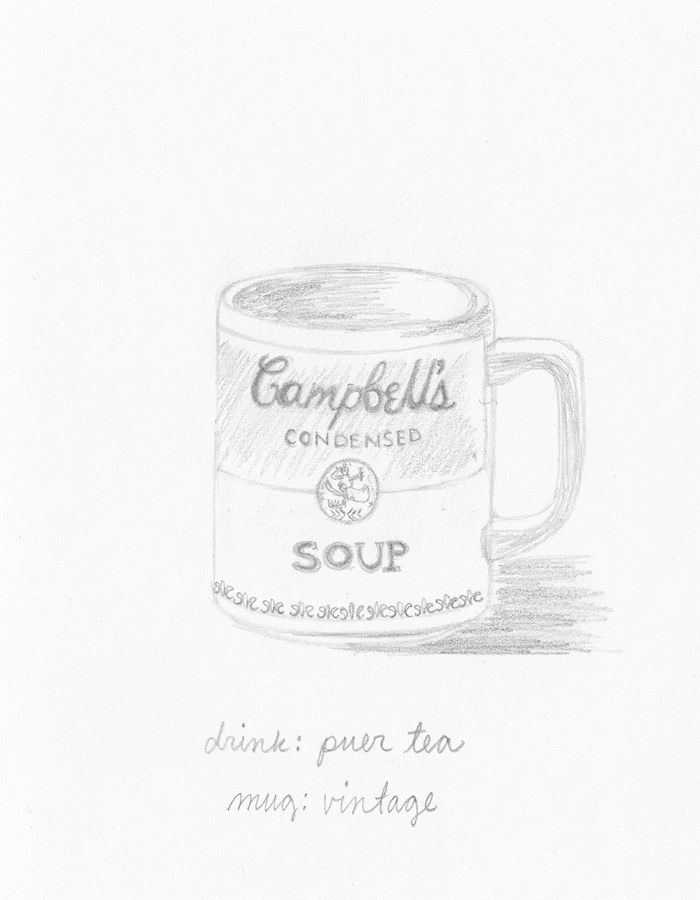 Campbell's
CONDENSED
SOUP
drink: puer tea
mug: vintage